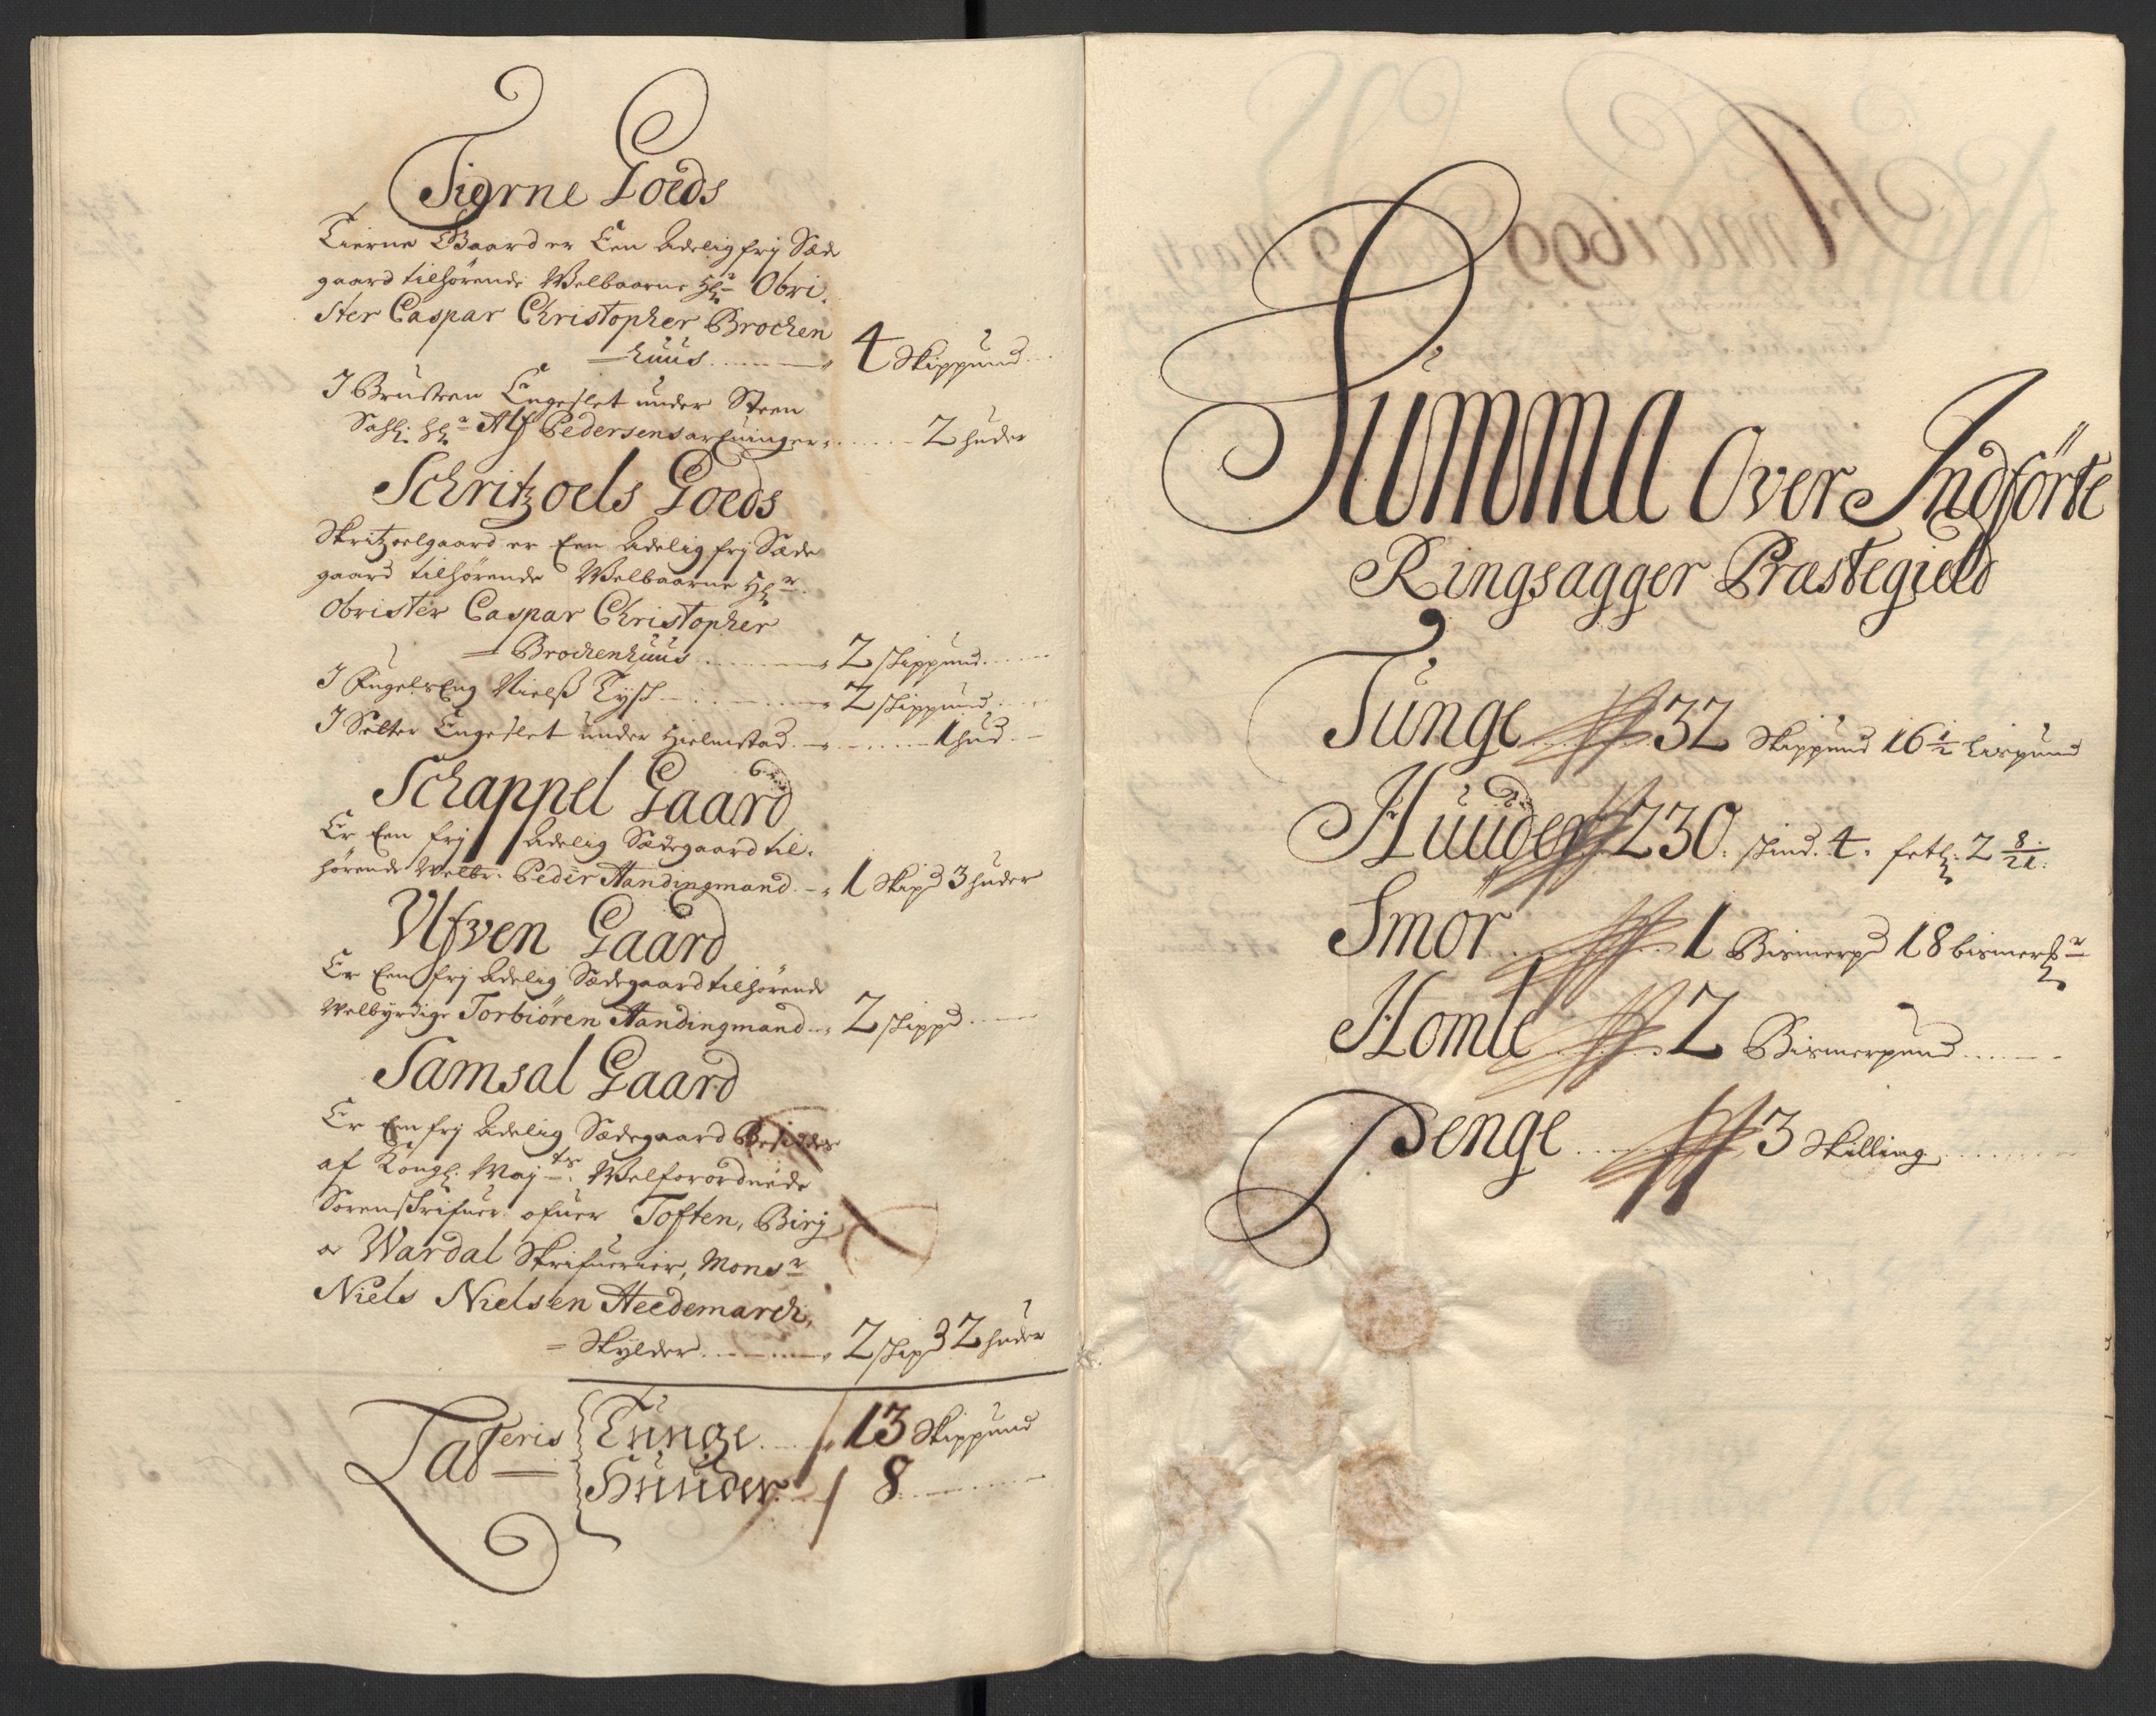 Tierne Goeds
Tierne Gaard er Een Adelig frj Sæde
gaard tilhørende Welbaarne Hr Obri.
ster Caspar Christopher Brochen
= huus 4 Skippund
I Brustren Engeslet under Steen
Sahl: Hr Alf Pedersens arfuinger 2 huder
Schritzoels Goeds
Skritzoelgaard er Een Adelig frj Sæde
gaard tilhørende Welbaarne Hr
Obrister Caspar Christopher
= Brochenhuus 2 skippund
I FugelsEng Nielß Tysk 2 skippund
I Selter Engeslet under Hielmstad 1 hud
Schappel Gaard
Er Een frj Adelig Sædegaard til.
hørende Welbr. Peder Handingmand 1 Skipd 3 huder
Ulfven Gaard
Er Een frj Adelig Sædegaard tilhørende
Welbyrdige Torbiören Handingmand 2 skippd
Samsal Gaard
Er Een frj Adelig Sædegaard Besiddes
af Kongl: Maj ts Welforordnede
Sorenskrifuer ofuer Toften, Birj
o Wardal Skrifuerier, Monsr
Niels Nielsen Heedemarch,
= Skylder 2 skipd 2 huder
Lateris Tunge 13 Skippund
Huuder 8
Summa Over Indförte
Ringsagger Præstegield
Tunge 32 Skippund 16 1/2 Lispund
Huuder 230. skind. 4. fetl: 2 8/21.
Smör 1 Bismerpd 18 bismermr
Homle 2 Bismerpund
Penge 3 Skilling